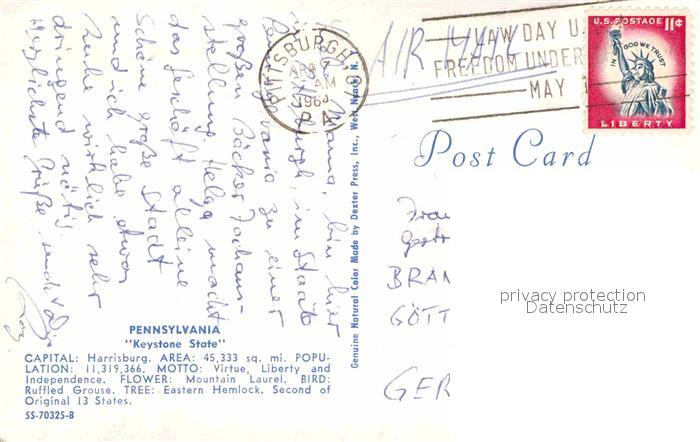 PITTSBURGH
APR
AM
1964
PA
AIR MAIL
LAW DAY U.
FREEDOM UNDER
MAY
U.S. POSTAGE 11¢
IN GOD WE TRUST
LIBERTY
Post Card
Mama, bin hier
in Pittsburgh, im Staate
Pennsylvania zu einer
großen Bäcker Fachaus-
stellung. Helga macht
das Geschäft alleine
Schöne große Stadt
und ich habe etwas
Ruhe wirklich sehr
dringend nötig
Herzlichste Grüße sendet Dir
Genuine Natural Color Made by Dexter Press, Inc., West Nyack, N.
Frau
BRAN
GÖTT
GER
privacy protection
Datenschutz
PENNSYLVANIA
"Keystone State"
CAPITAL: Harrisburg. AREA: 45,333 sq. mi. POPU-
LATION: 11,319,366. MOTTO: Virtue, Liberty and
Independence. FLOWER: Mountain Laurel. BIRD:
Ruffled Grouse. TREE: Eastern Hemlock. Second of
Original 13 States.
SS-70325-B